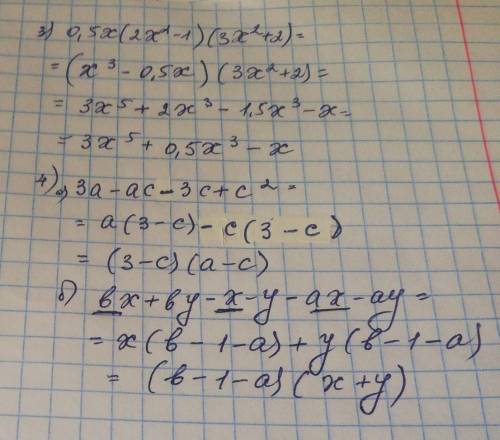 3) 0,5x(2x²-1)(3x²+2)=
=(x³-0,5x)(3x²+2)=
=3x⁵+2x³-1,5x³-x=
=3x⁵+0,5x³-x
4) a) 3a-ac-3c+c²=
=a(3-c)-c(3-c)
=(3-c)(a-c)
б) вx+вy-x-y-ax-ay=
=x(в-1-a)+y(в-1-a)
=(в-1-a)(x+y)